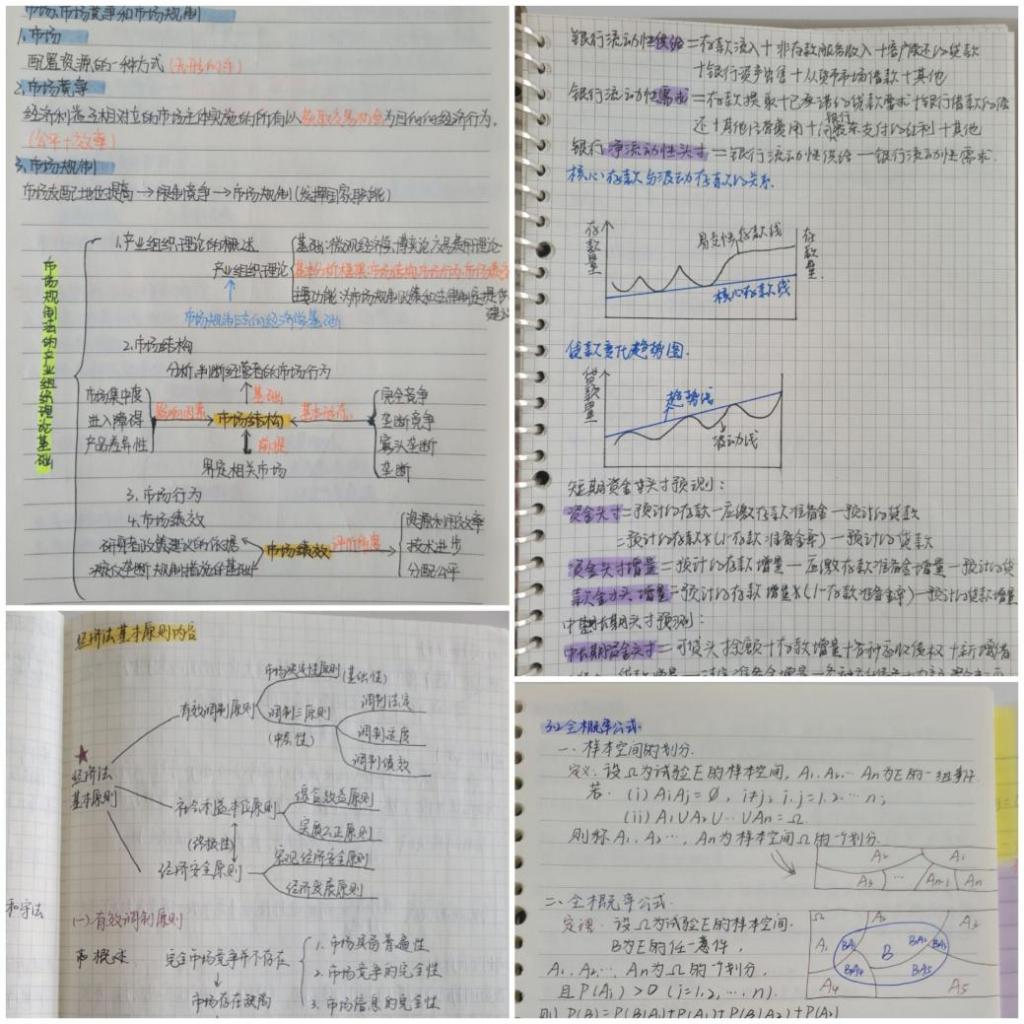 市场、市场竞争和市场规制
1.市场
配置资源的一种方式(无形的手)
2.市场竞争
经济利益互相对立的市场主体实施的所有以获取交易机会为目的的经济行为.
(公平+效率)
3.市场规制
市场支配地位提高→限制竞争→市场规制(发挥国家职能)
市场规制法的产业组织理论基础
1.产业组织理论的概述
基础:微观经济学、博弈论、交易费用理论
产业组织理论
基本分析框架:市场结构、市场行为、市场绩效
主要功能:为市场规制政策和法律制定提供建议
市场规制法的经济学基础
2.市场结构
分析、判断经营者的市场行为
市场集中度
进入障碍
产品差异性
影响因素
基础
市场结构
基本
前提
界定相关市场
完全竞争
垄断竞争
寡头垄断
垄断
3.市场行为
4.市场绩效
政策建议的依据
市场绩效
评价标准
资源利用效率
技术进步
分配公平
银行流动性供给=存款流入+非存款服务收入+客户偿还的贷款
+银行资产出售+从货币市场借款+其他
银行流动性需求=存款提取+已承诺的贷款需求+银行借款的偿
还+其他经营费用+向银行股东支付的红利+其他
银行净流动性头寸=银行流动性供给-银行流动性需求.
核心存款与波动存款的关系.
存款量
易变性存款线
存款量
核心存款线
贷款变化趋势图.
贷款量
趋势线
波动线
短期资金头寸预测:
资金头寸=预计的存款-应缴存款准备金-预计的贷款
=预计的存款×(1-存款准备金率)-预计的贷款
资金头寸增量=预计的存款增量-应缴存款准备金增量-预计的贷
款增量=预计的存款增量×(1-存款准备金率)-预计的贷款增量
中长期头寸预测:
中长期资金头寸=可贷头寸余额+存款增量+各种应收债权+新增借
经济法基本原则内容
经济法基本原则
有效调制原则
市场决定性原则(基础性)
调制三原则
调制法定
调制适度
调制绩效
社会利益本位原则
综合效益原则
实质公正原则
(终极性)
经济安全原则
宏观经济安全原则
经济发展原则
和守法
(一)有效调制原则
概述
完全市场竞争并不存在
1.市场具有普遍性
2.市场竞争的完全性
3.市场信息的完全性
市场存在缺陷
3.2全概率公式.
一、样本空间的划分.
定义:设Ω为试验E的样本空间,A₁,A₂…An为E的一组事件
若.(i)AiAj=Ø,i≠j,i.j=1.2.…n;
(ii)A₁∪A₂∪…∪An=Ω.
则称A₁、A₂…,An为样本空间Ω的一个划分.
A₂ A₁
A₃ … An-1 An
二、全概率公式.
定理:设Ω为试验E的样本空间.
B为E的任一事件,
A₁.A₂…,An为Ω的一个划分,
且P(Ai)>0(i=1.2,…,n).
Ω
A₁
B
A₄
A₅
则P(B)=P(B|A₁)P(A₁)+P(B|A₂)P(A₂)